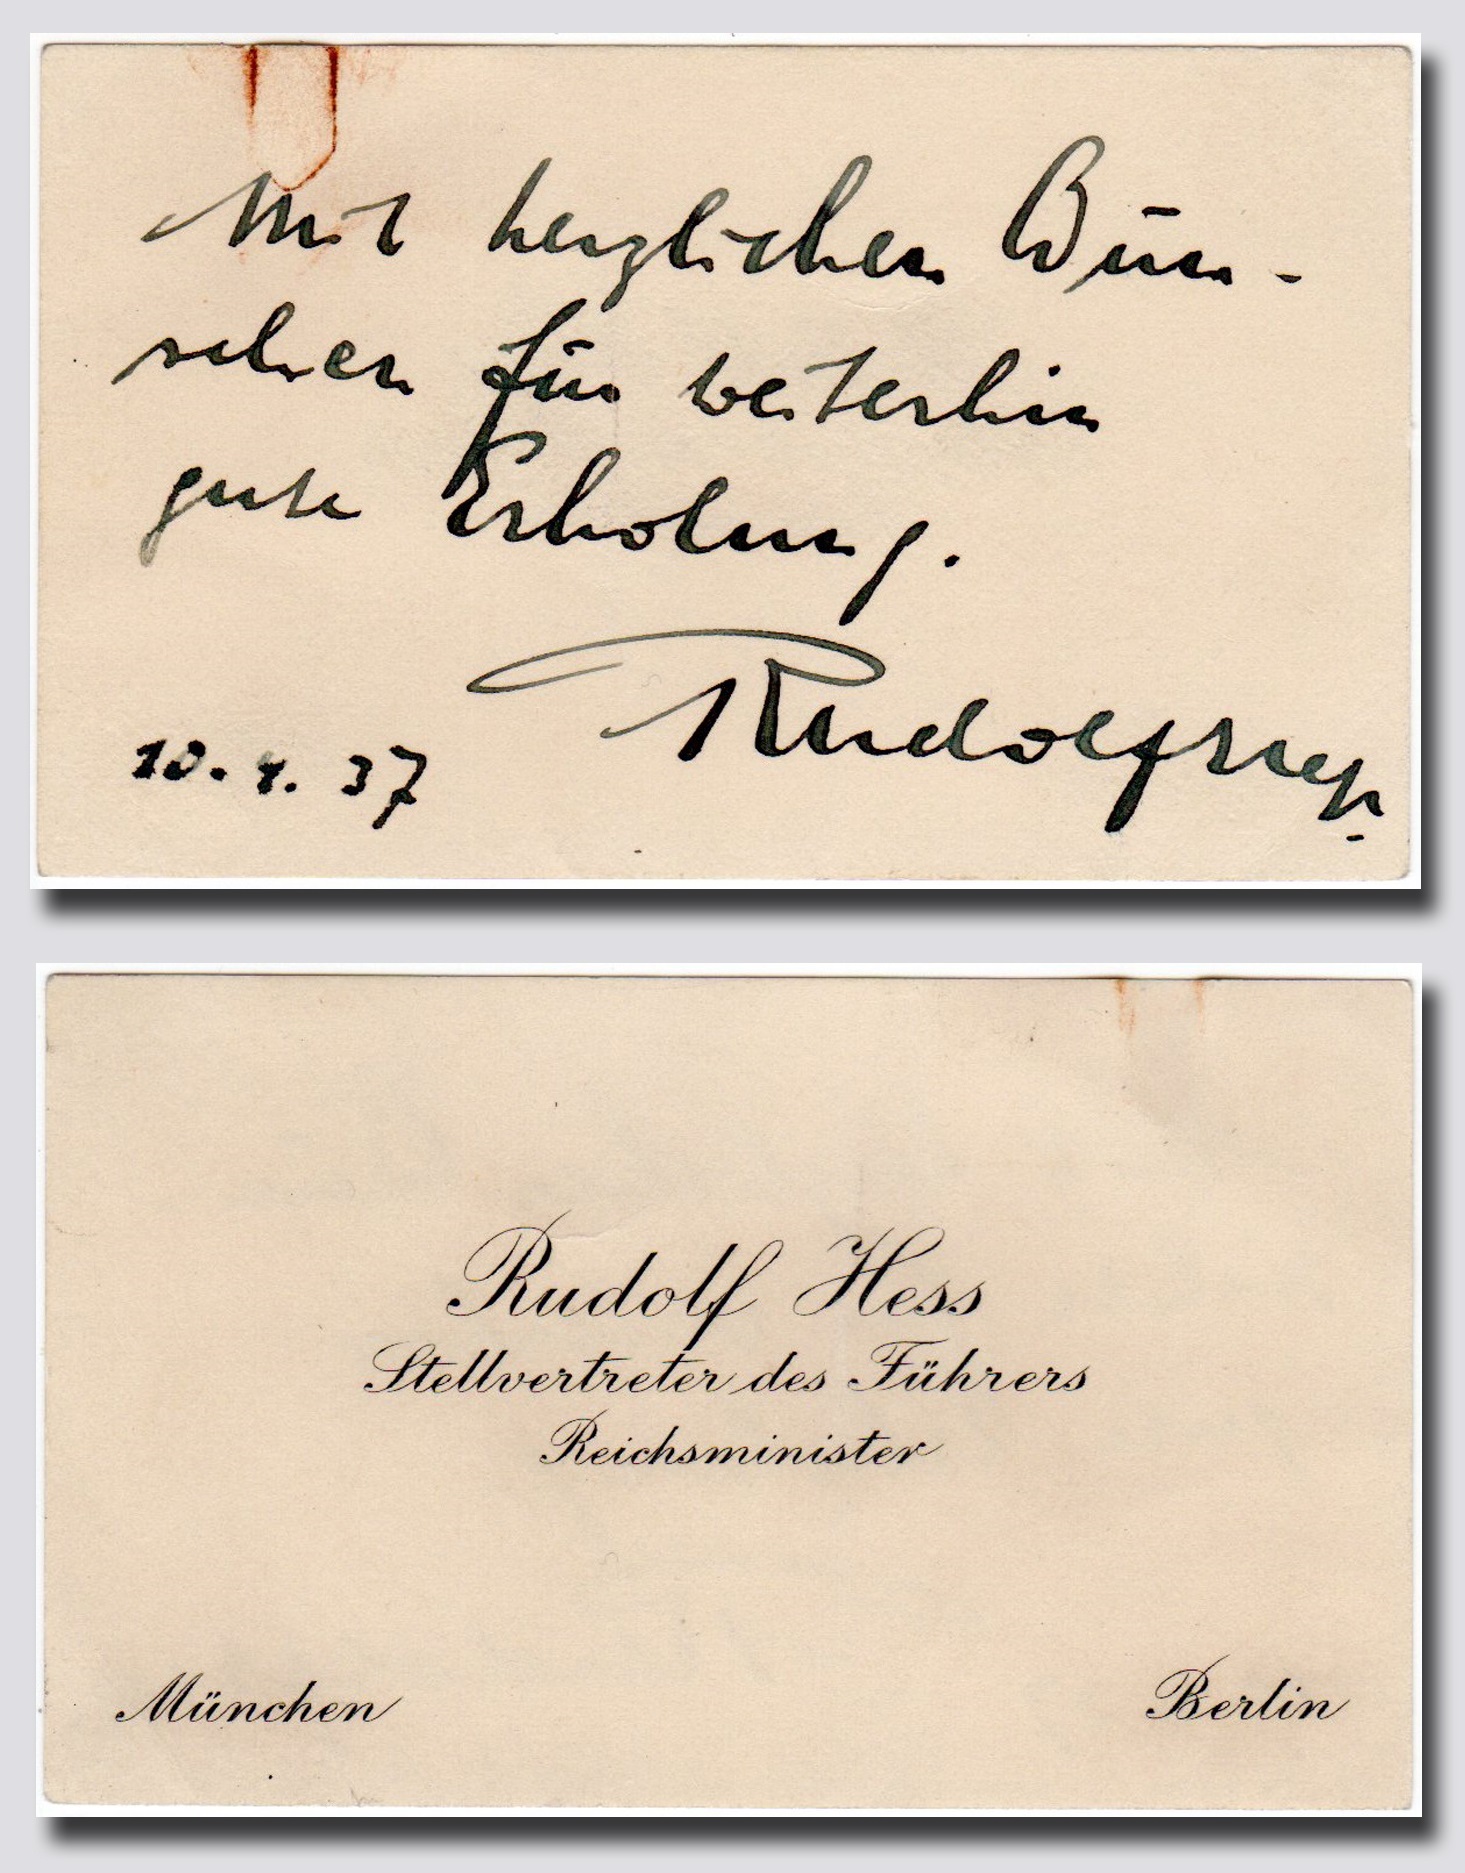 Mit herzlichen Wün-
schen für weiterhin
gute Erholung.
Rudolf Heß
10.4.37
Rudolf Hess
Stellvertreter des Führers
Reichsminister
München
Berlin